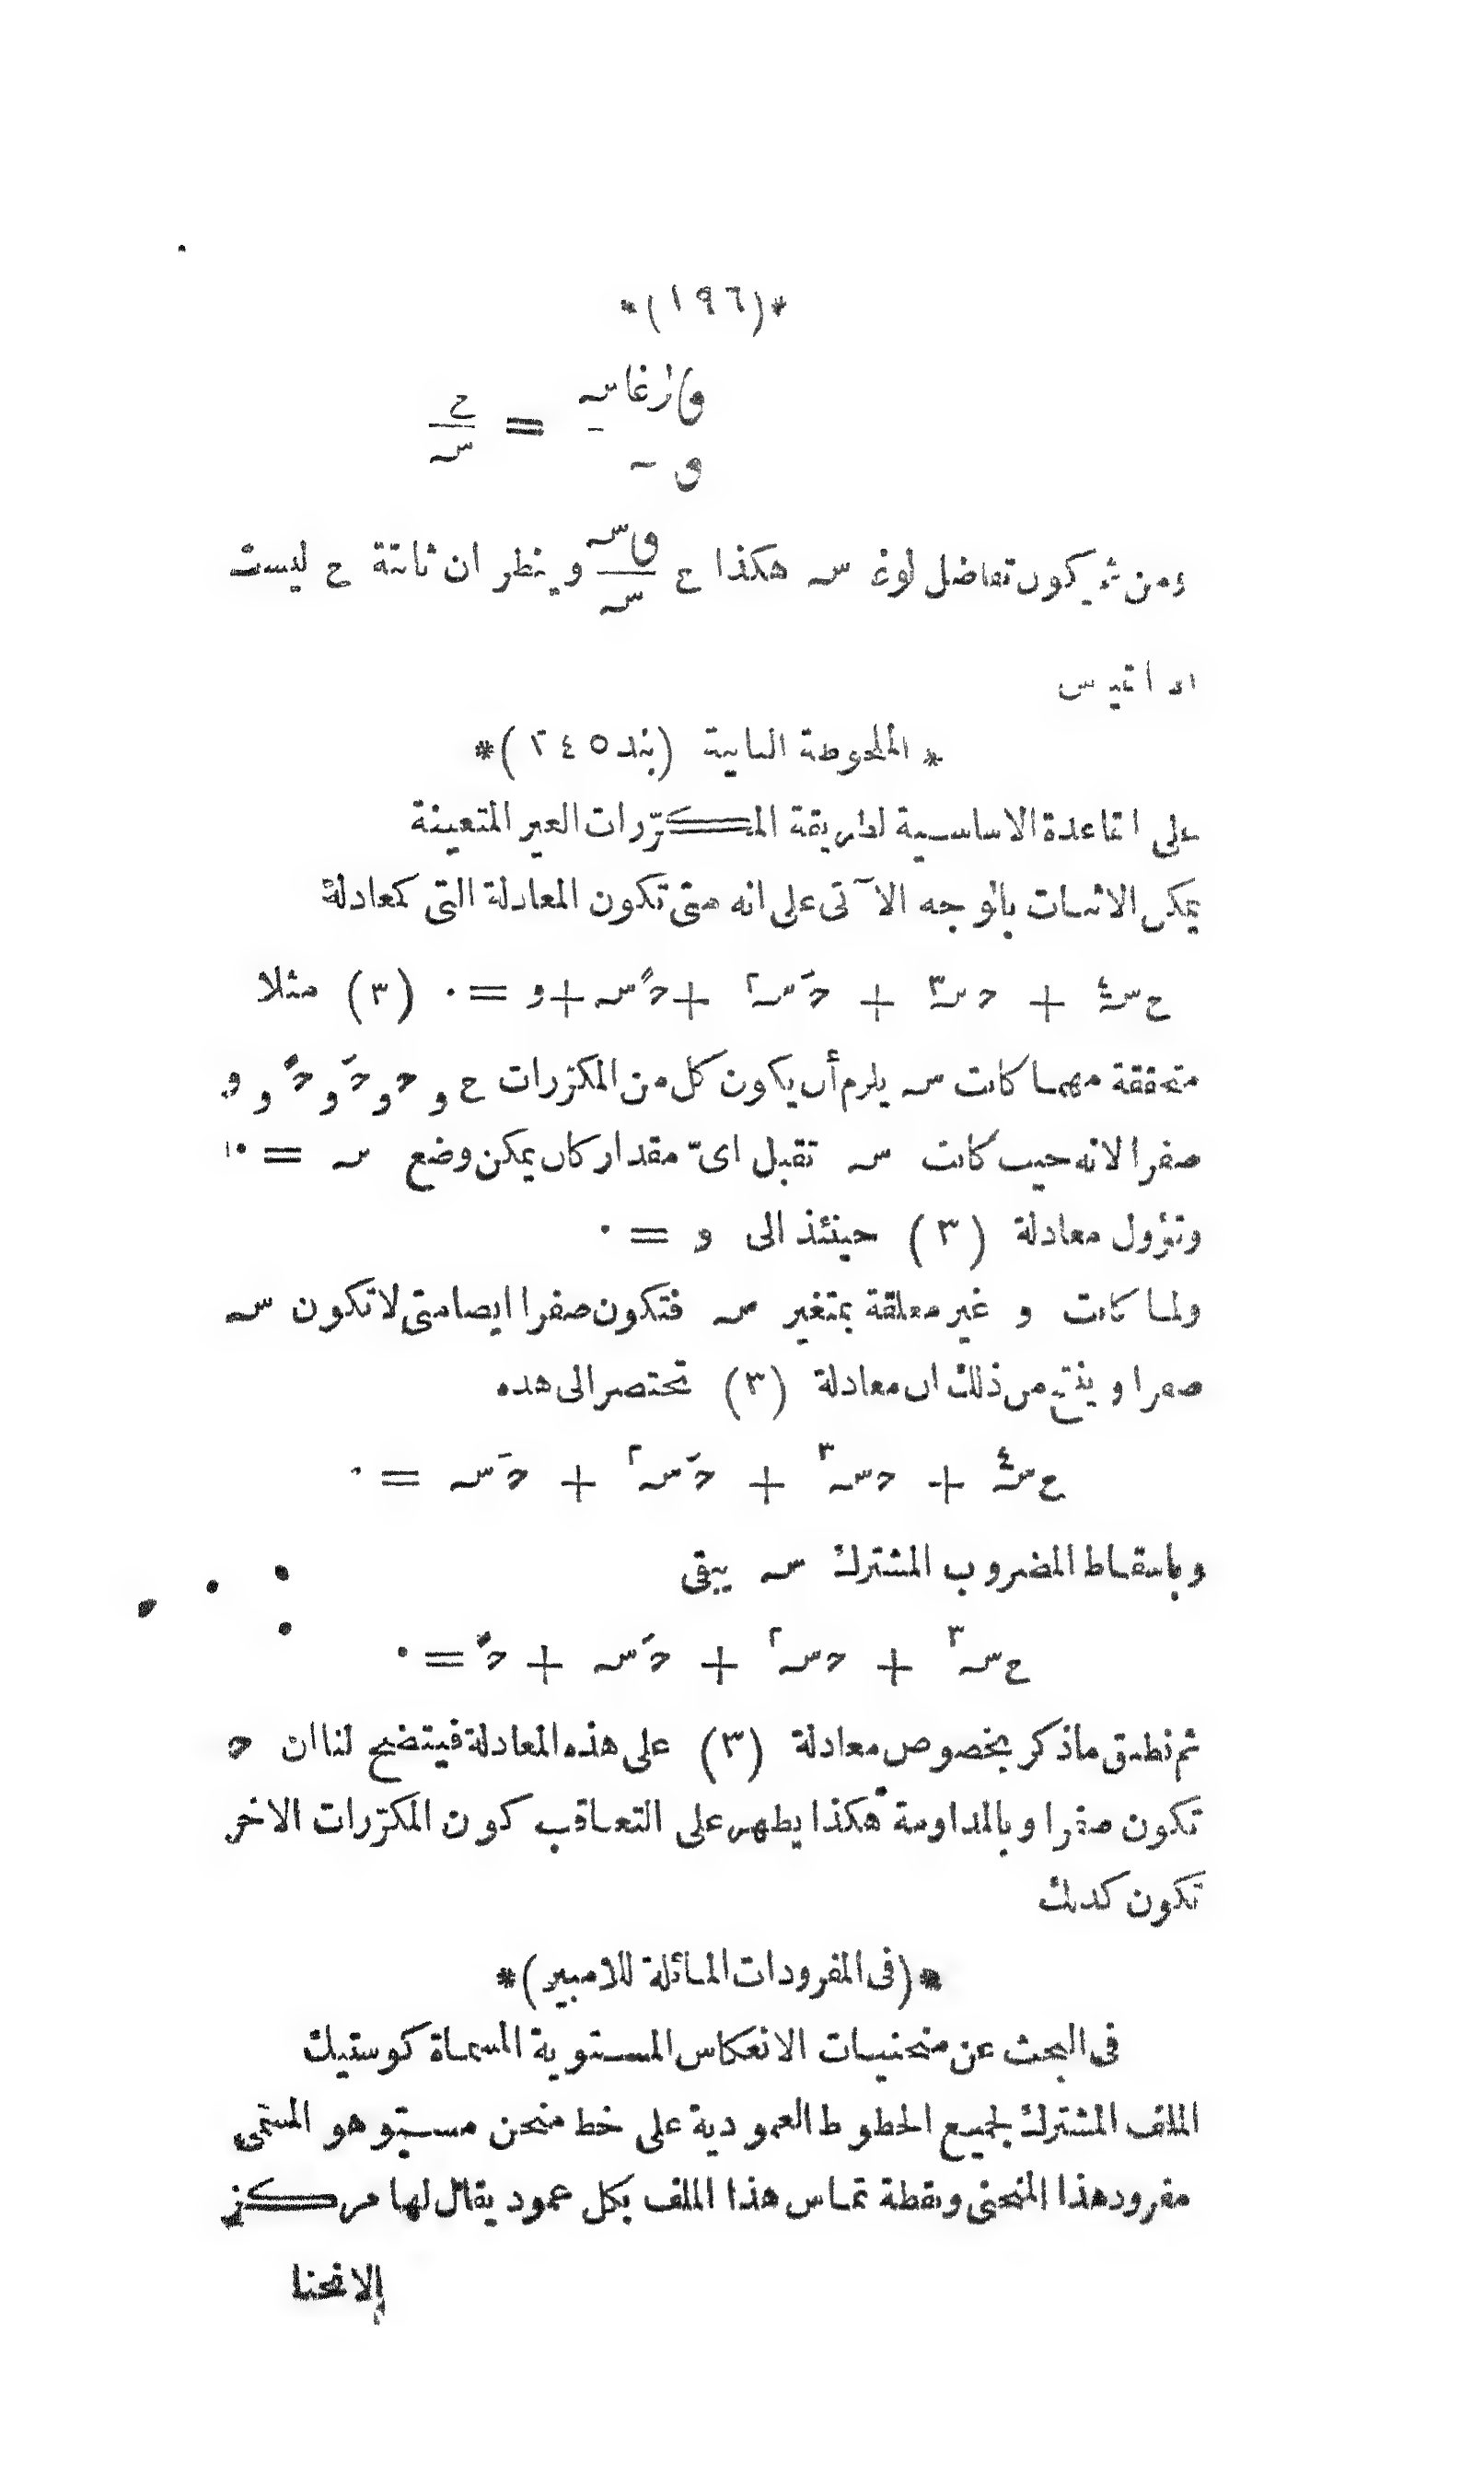 *(١٩٦)*
ولوغاسہ / وسہ = ح / سہ
ومن ثم يكون تفاضل لوغ سہ هكذا ح وسہ / سہ وينظر ان ثابتة ح ليست
* الملحوظة الثانية (بند ٢٤٥)*
على القاعدة الاساسية لطريقة المكرّرات الغير المتعينة
يمكن الاثبات بالوجه الآتى على انه متى تكون المعادلة التى كمعادلة
ح سہ٤ + حـ سہ٣ + حـَ سہ٢ + حـً سہ + و = ٠ (٣) مثلا
متحققة مهما كانت سہ يلزم أن يكون كل من المكرّرات ح و حـ و حـَ و حـً و و
صفرا لانه حيث كانت سہ تقبل اىّ مقدار كان يمكن وضع سہ = ٠
وتؤول معادلة (٣) حينئذ الى و = ٠
ولما كانت و غير معلقة بمتغير سہ فتكون صفرا ايضا متى لا تكون سہ
صفرا وينتج من ذلك ان معادلة (٣) تختصر الى هذه
ح سہ٤ + حـ سہ٣ + حـَ سہ٢ + حـَ سہ = ٠
وباسقاط المضروب المشترك سہ يبقى
ح سہ٣ + حـ سہ٢ + حـَ سہ + حـً = ٠
ثم نطبق ماذكر بخصوص معادلة (٣) على هذه المعادلة فيتضح لنا ان حـ
تكون صفرا وبالمداومة هكذا يظهر على التعاقب كون المكرّرات الاخر
تكون كذلك
*(فى المفرودات المائلة للامبير)*
فى البحث عن منحنيات الانعكاس المستوية المسماة كوستيك
الملف المشترك لجميع الخطوط العمودية على خط منحن مستو هو المسمى
مفرود هذا المنحنى ونقطة تماس هذا الملف بكل عمود يقال لها مركز
الانحنا